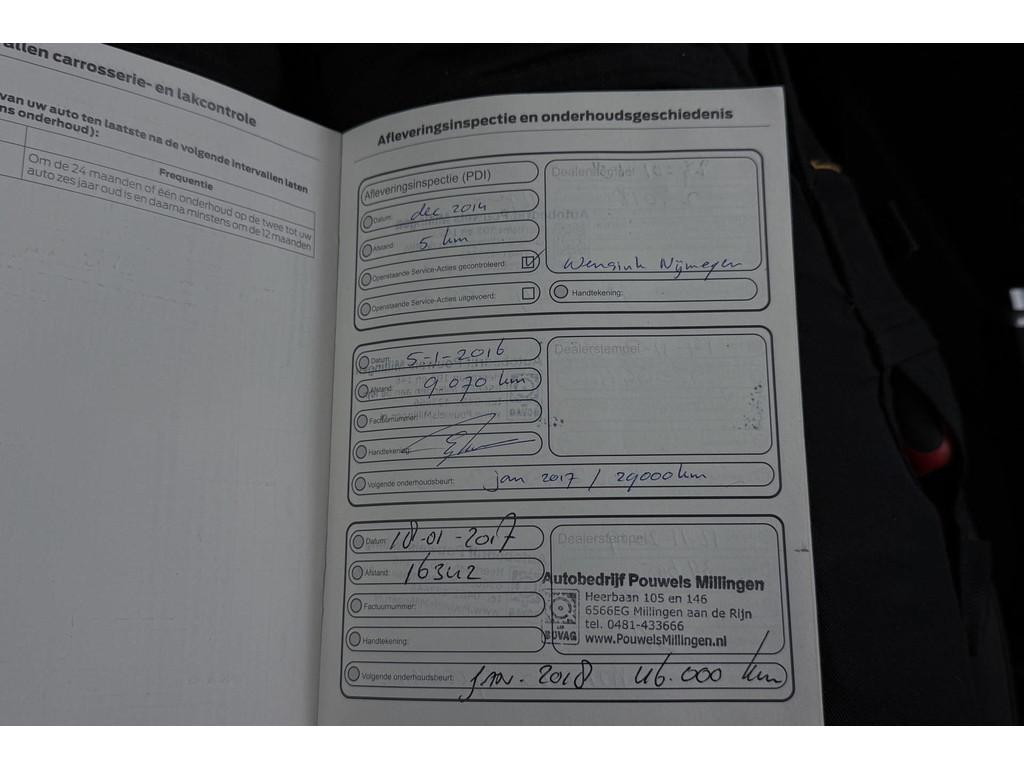 allen carrosserie- en lakcontrole
van uw auto ten laatste na de volgende intervallen laten
ns onderhoud):
Frequentie
Om de 24 maanden of één onderhoud op de twee tot uw
auto zes jaar oud is en daarna minstens om de 12 maanden
Afleveringsinspectie en onderhoudsgeschiedenis
Afleveringsinspectie (PDI)
Dealerstempel
Datum: dec 2014
Afstand: 5 km
Openstaande Service-Acties gecontroleerd:
Wensink Nijmegen
Openstaande Service-Acties uitgevoerd:
Handtekening:
Datum: 5-1-2016
Dealerstempel
Afstand: 9.070 km
Factuurnummer:
Handtekening:
Volgende onderhoudsbeurt: jan 2017 / 29000 km
Datum: 18-01-2017
Dealerstempel
Afstand: 16342
Autobedrijf Pouwels Millingen
Heerbaan 105 en 146
6566EG Millingen aan de Rijn
tel. 0481-433666
www.PouwelsMillingen.nl
BOVAG
Factuurnummer:
Handtekening:
Volgende onderhoudsbeurt: JAN. 2018 46.000 km